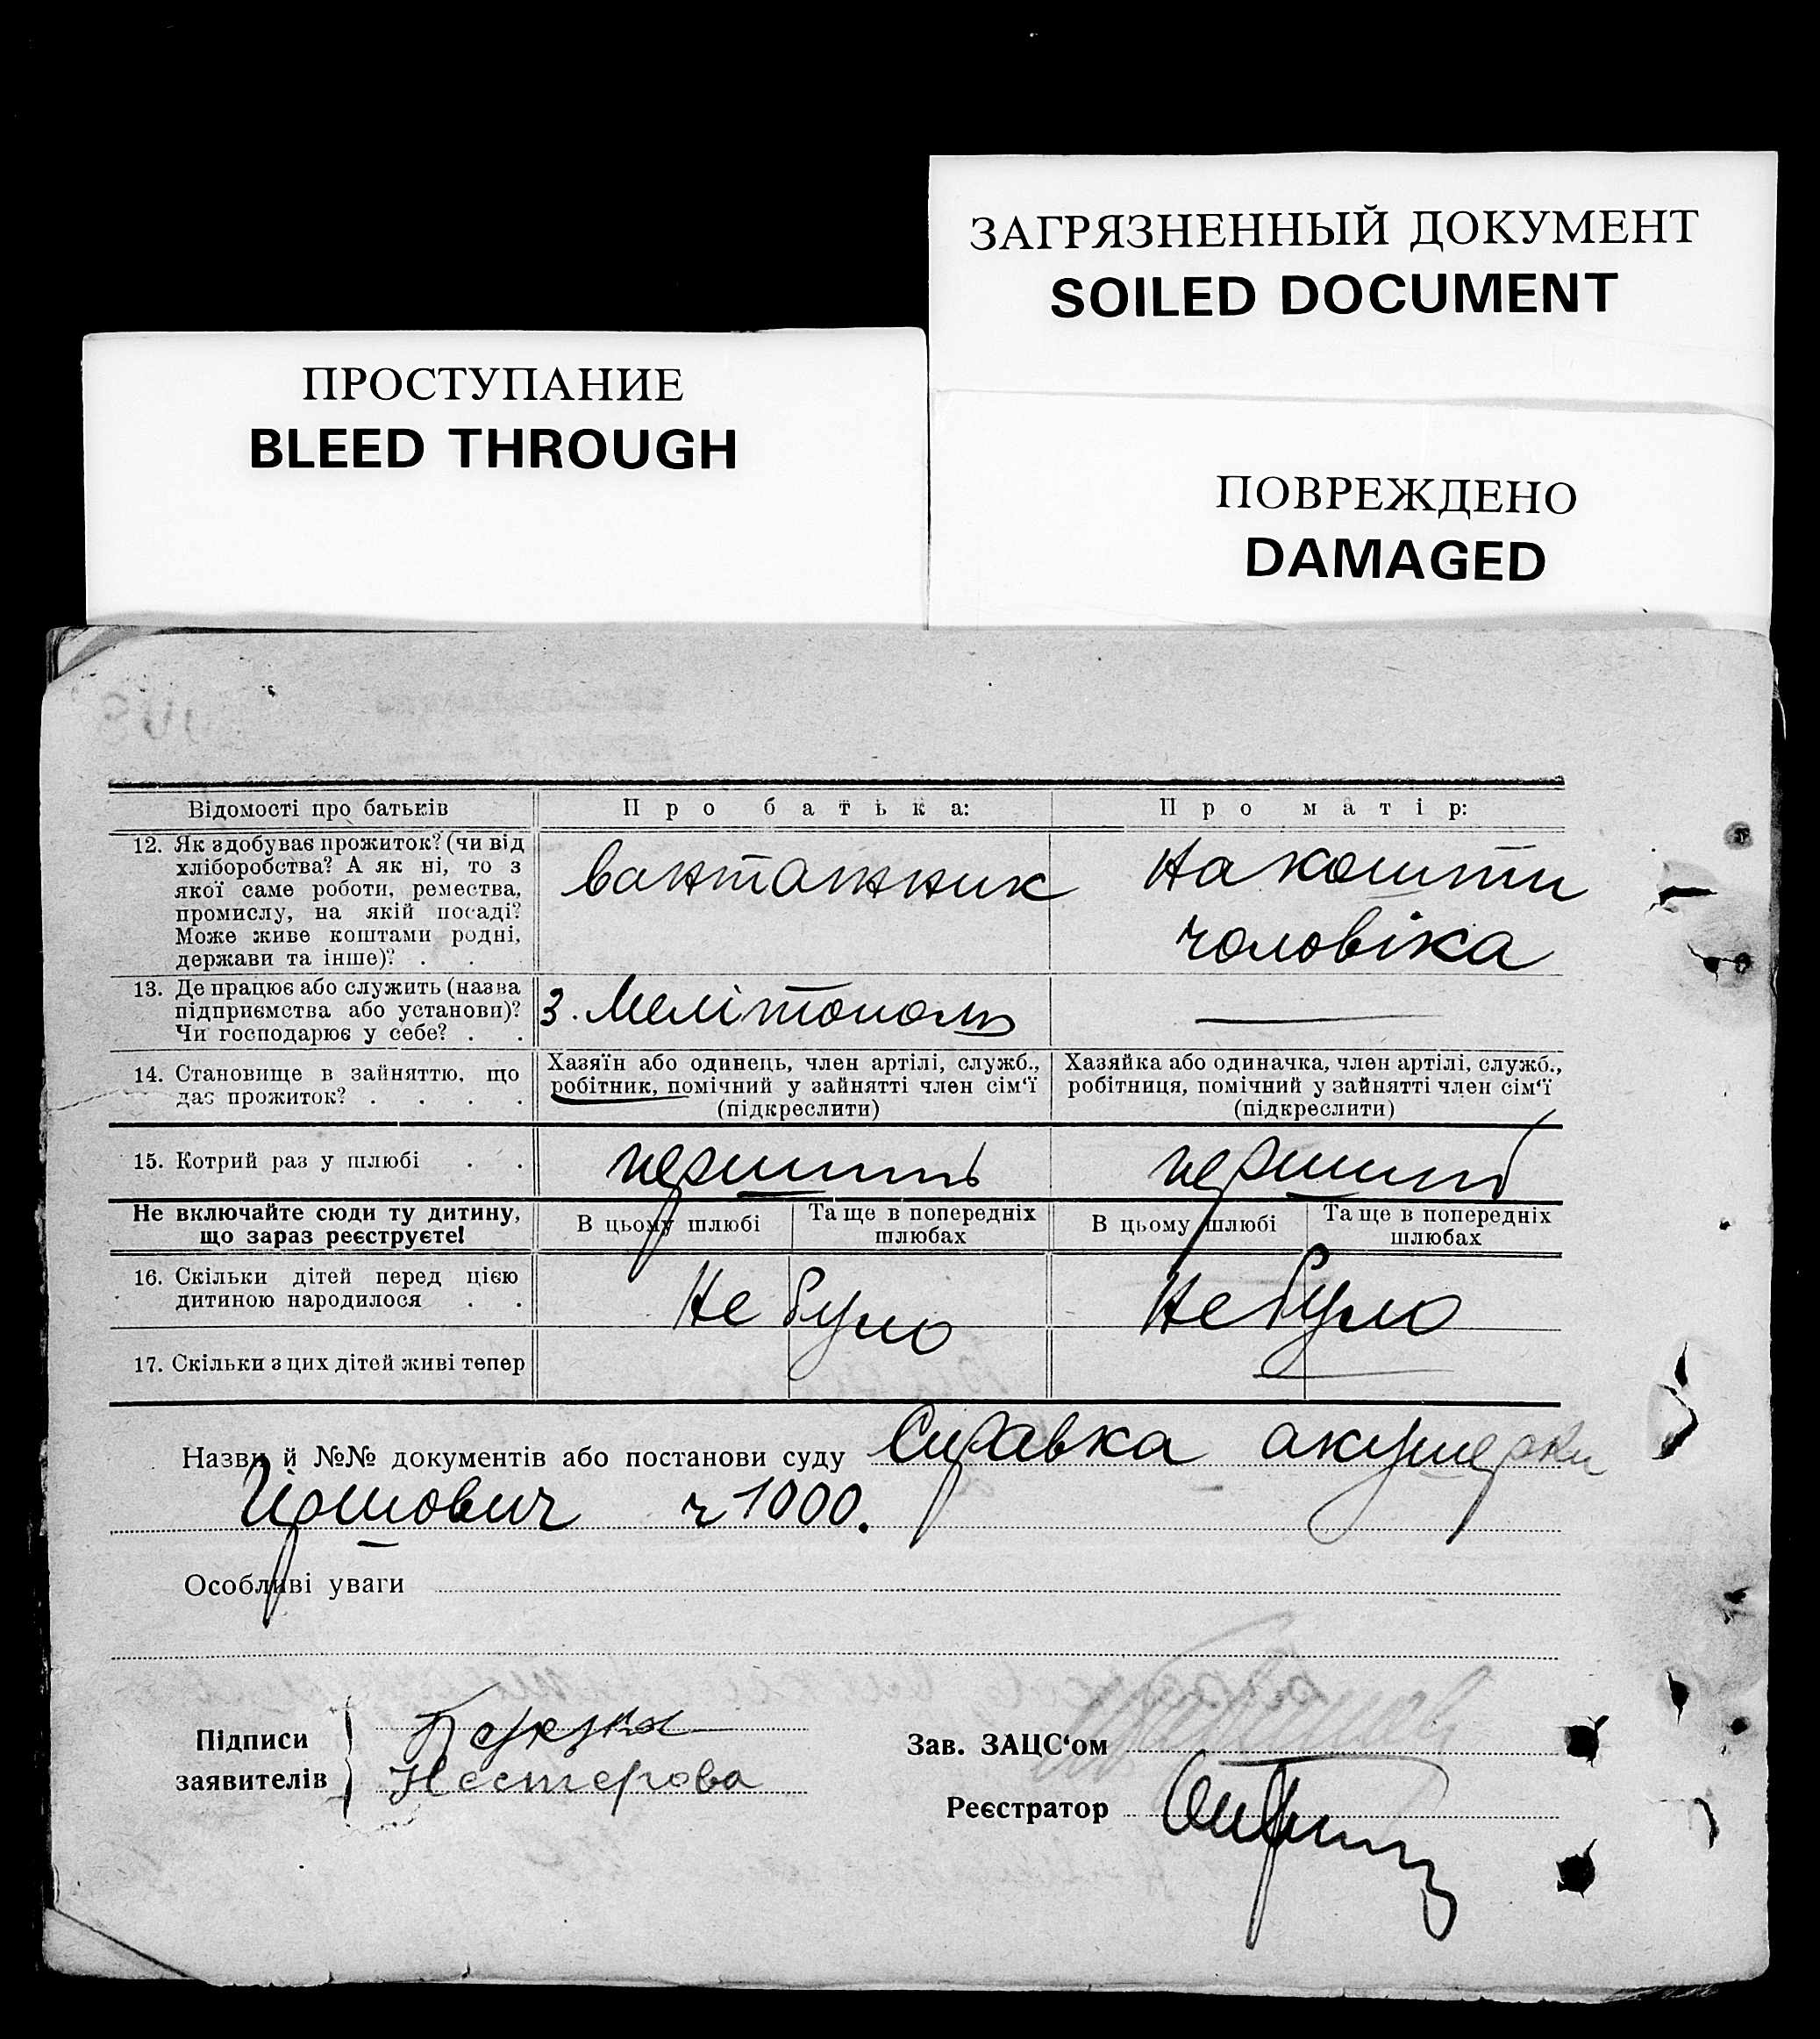 ЗАГРЯЗНЕННЫЙ ДОКУМЕНТ
SOILED DOCUMENT
ПРОСТУПАНИЕ
BLEED THROUGH
ПОВРЕЖДЕНО
DAMAGED
Відомості про батьків
Про батька:
Про матір:
12. Як здобуває прожиток? (чи від
хліборобства? А як ні, то з
якої саме роботи, ремества,
промислу, на якій посаді?
Може живе коштами родні,
держави та інше)? . .
вантажник
на кошти
чоловіка
13. Де працює або служить (назва
підприємства або установи)?
Чи господарює у себе? . .
З. Мелітополь
14. Становище в зайняттю, що
дає прожиток? . . . .
Хазяїн або одинець, член артілі, служб.,
робітник, помічний у зайнятті член сім‘ї
(підкреслити)
Хазяйка або одиначка, член артілі, служб.,
робітниця, помічний у зайнятті член сім‘ї
(підкреслити)
15. Котрий раз у шлюбі . .
перший
перший
Не включайте сюди ту дитину,
що зараз реєструєте!
В цьому шлюбі
Та ще в попередніх
шлюбах
В цьому шлюбі
Та ще в попередніх
шлюбах
16. Скільки дітей перед цією
дитиною народилося . .
Не було
Не було
17. Скільки з цих дітей живі тепер
Назви й №№ документів або постанови суду Справка акушерки
ч 1000.
Особливі уваги
Підписи
заявителів
Нестерова
Зав. ЗАЦС‘ом
Реєстратор